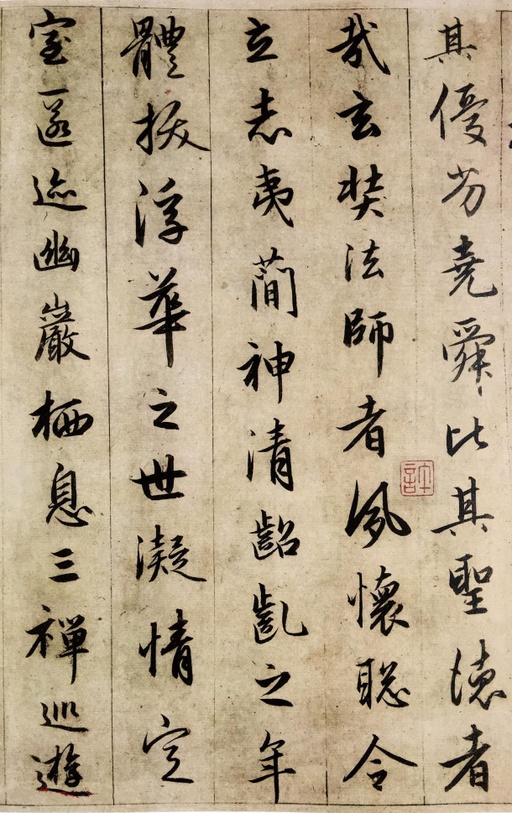 其優劣堯舜比其聖德者
哉玄奘法師者夙懷聰令
立志夷蕳神清齠齓之年
體拔浮華之世凝情定
室匿迹幽巖栖息三禪巡遊
許